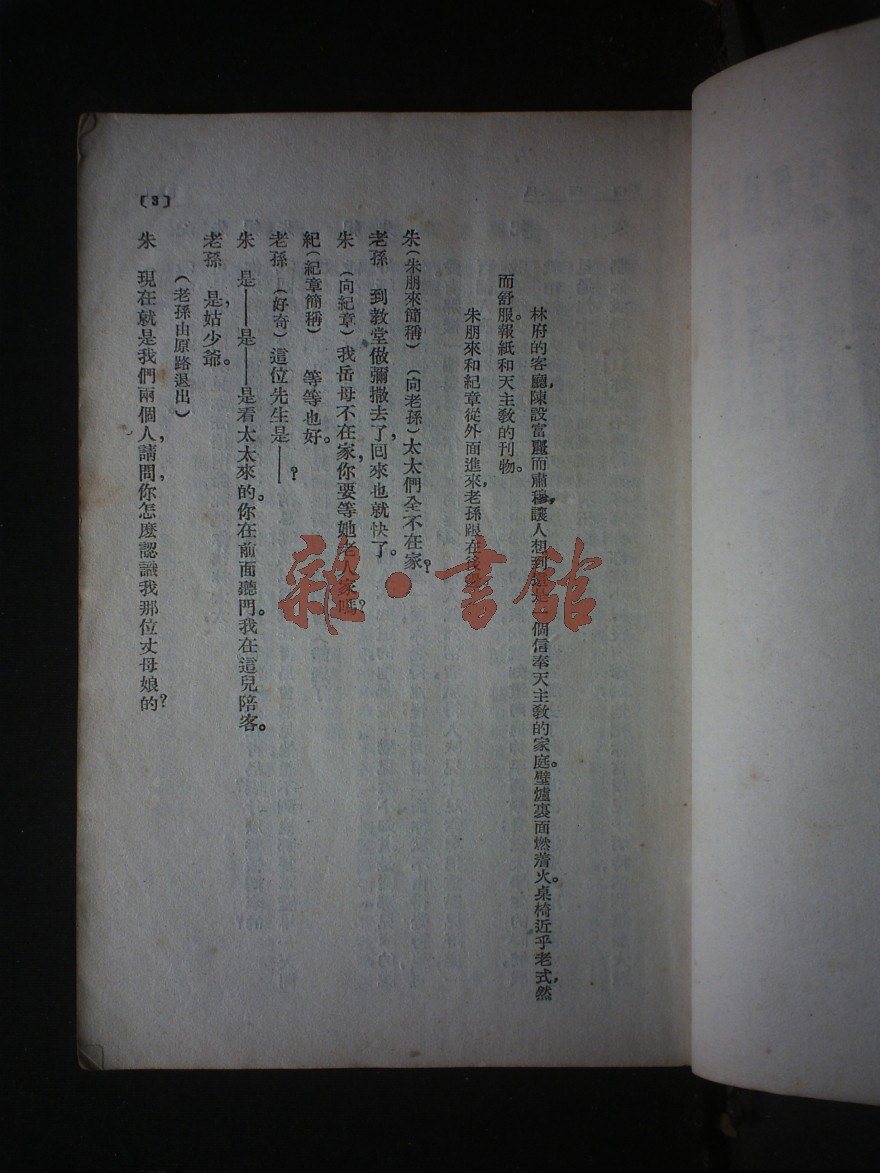 林府的客廳，陳設富麗而肅穆，讓人想到這是一個信奉天主教的家庭。壁爐裏面燃着火。桌椅近乎老式，然
而舒服。報紙和天主教的刊物。
朱朋來和紀章從外面進來，老孫跟在後
朱（朱朋來簡稱）（向老孫）太太們全不在家？
老孫　到教堂做彌撒去了，回來也就快了。
朱　（向紀章）我岳母不在家，你要等她老人家嗎？
紀（紀章簡稱）　等等也好。
老孫　（好奇）這位先生是——？
朱　是——是——是看太太來的。你在前面聽門。我在這兒陪客。
老孫　是，姑少爺。
（老孫由原路退出）
朱　現在就是我們兩個人，請問，你怎麼認識我那位丈母娘的？
〔3〕
雜·書館